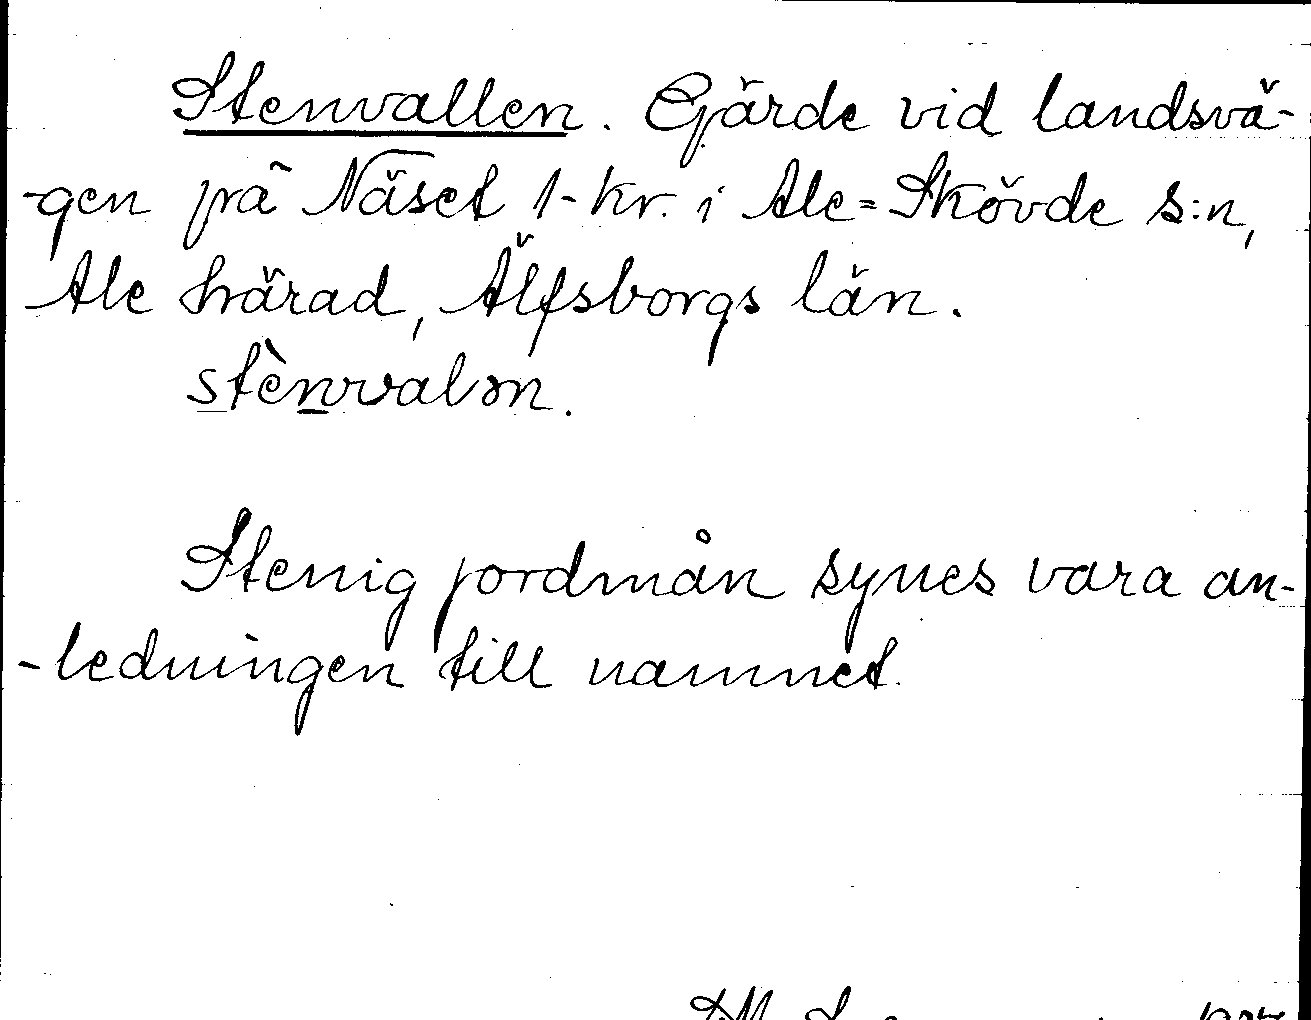 Stenvallen. Gärde vid landsvä-
-gen på Näset 1-kr. i Ale=Skövde s:n,
Ale härad, Älfsborgs län.
stènvalən.
Stenig jordmån synes vara an-
-ledningen till namnet.